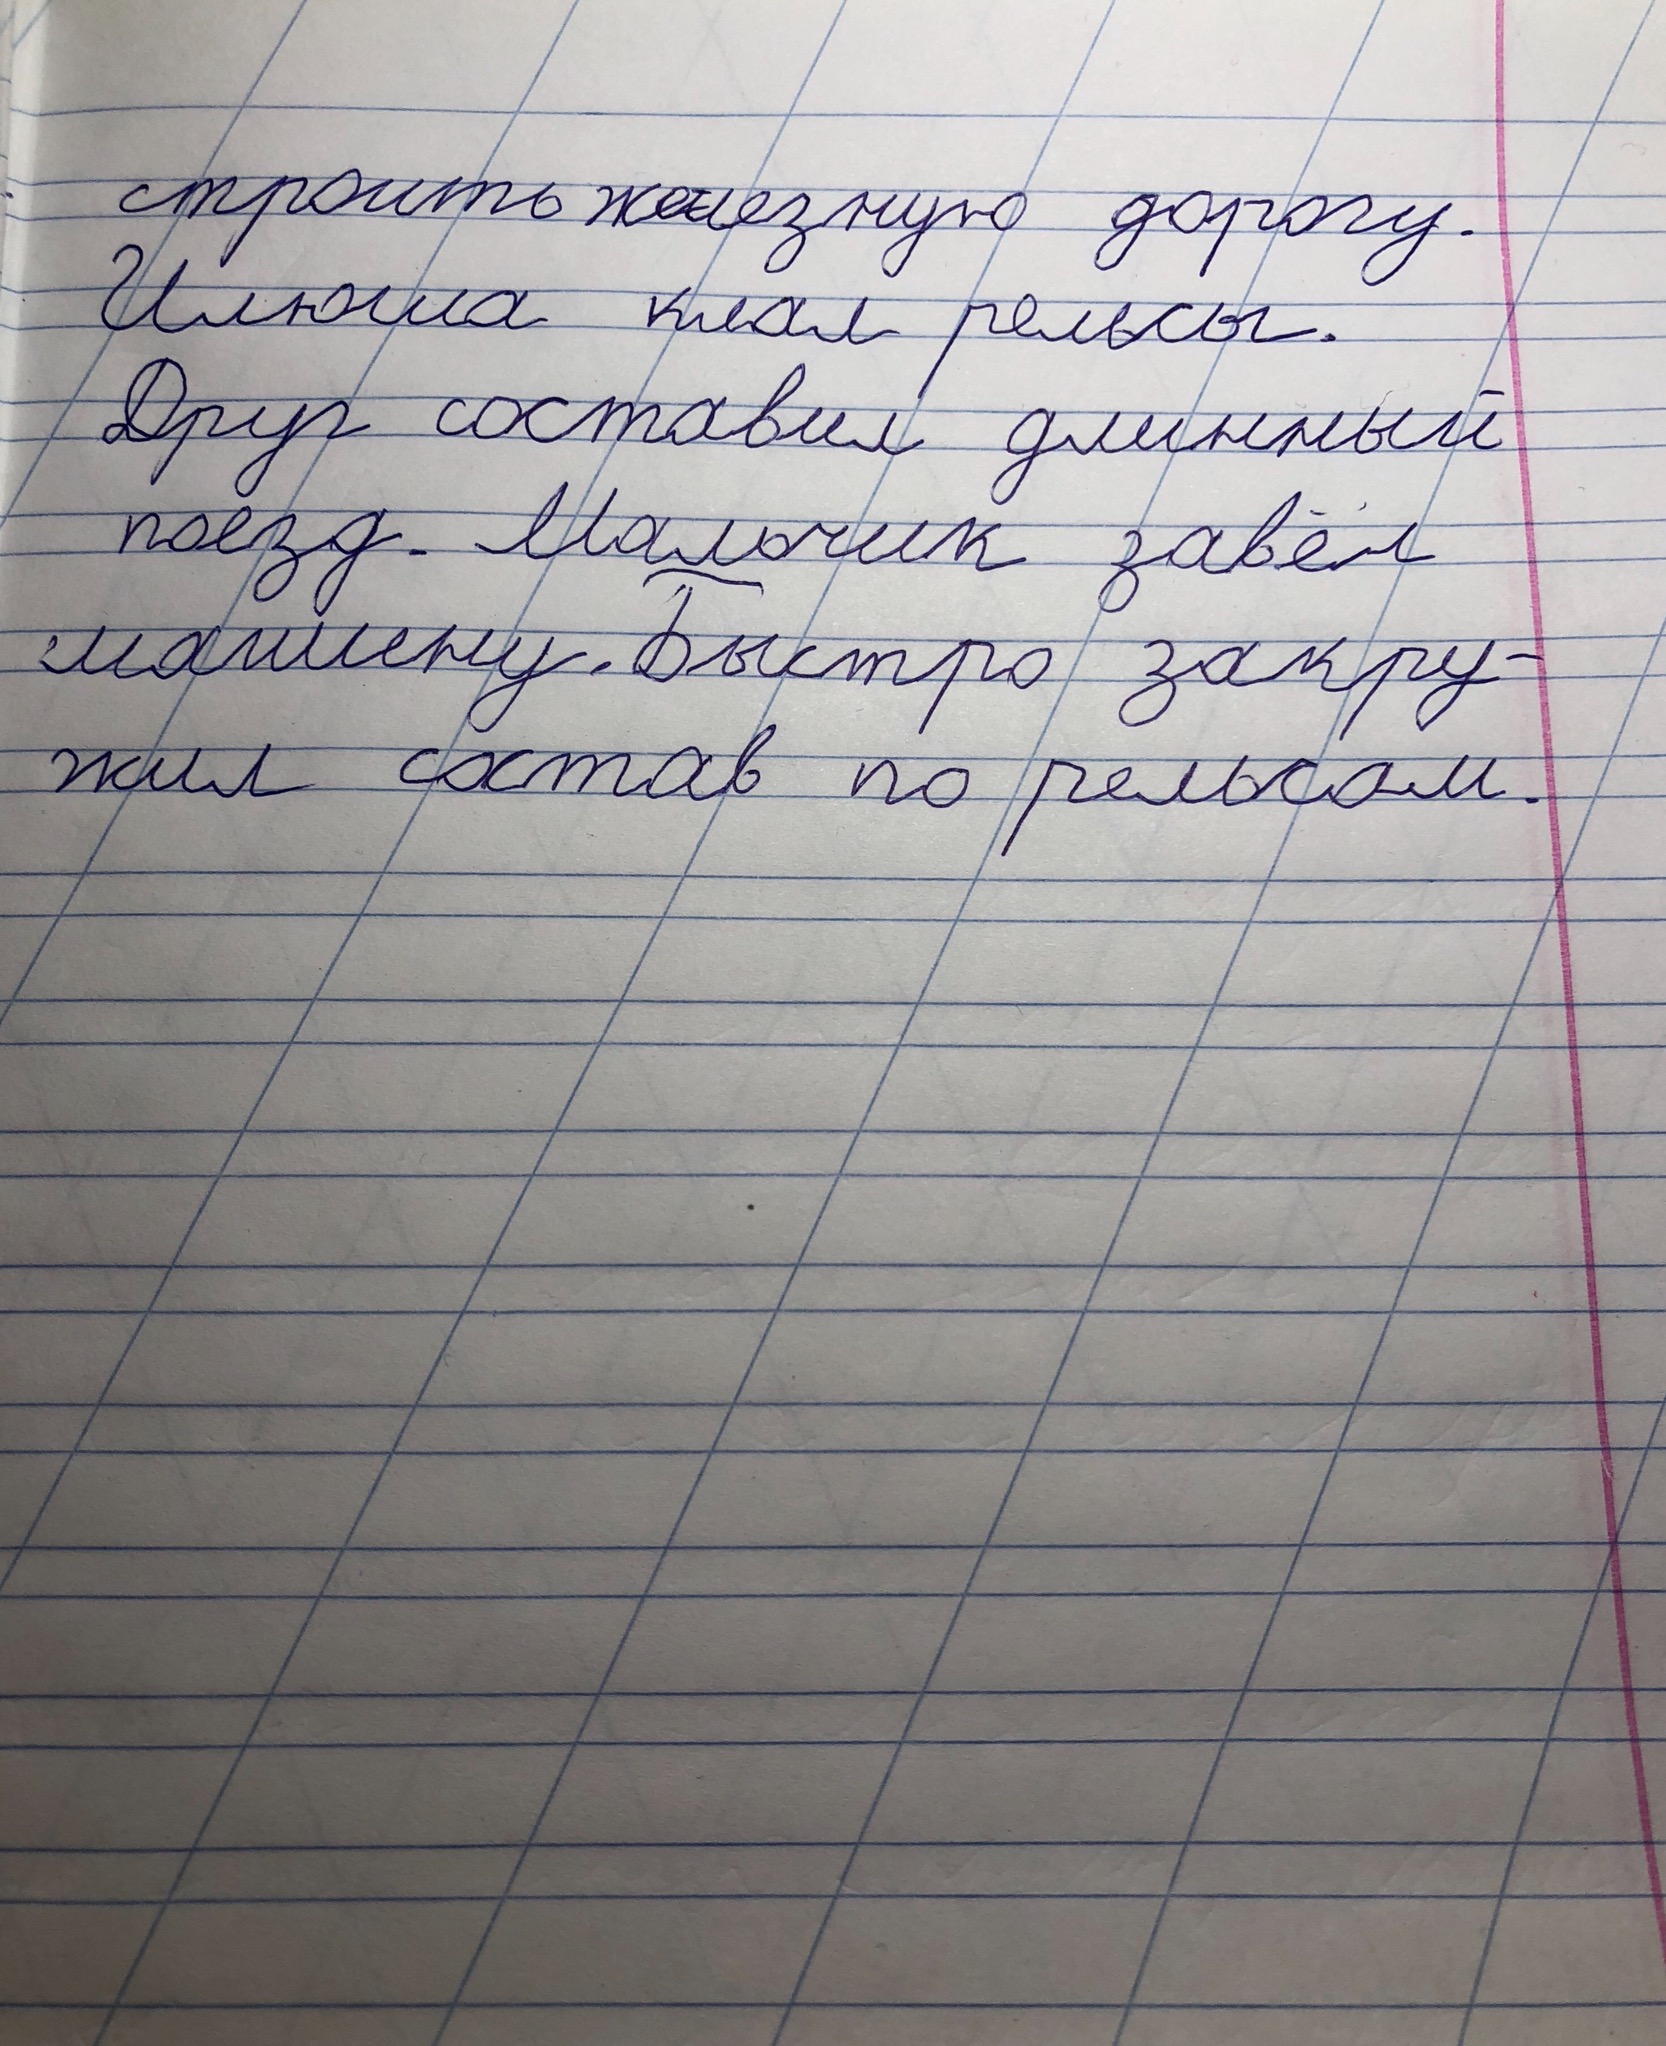 строить железную дорогу.
Илюша клал рельсы.
Друг составил длинный
поезд. Мальчик завёл
машину. Быстро закру-
жил состав по рельсам.